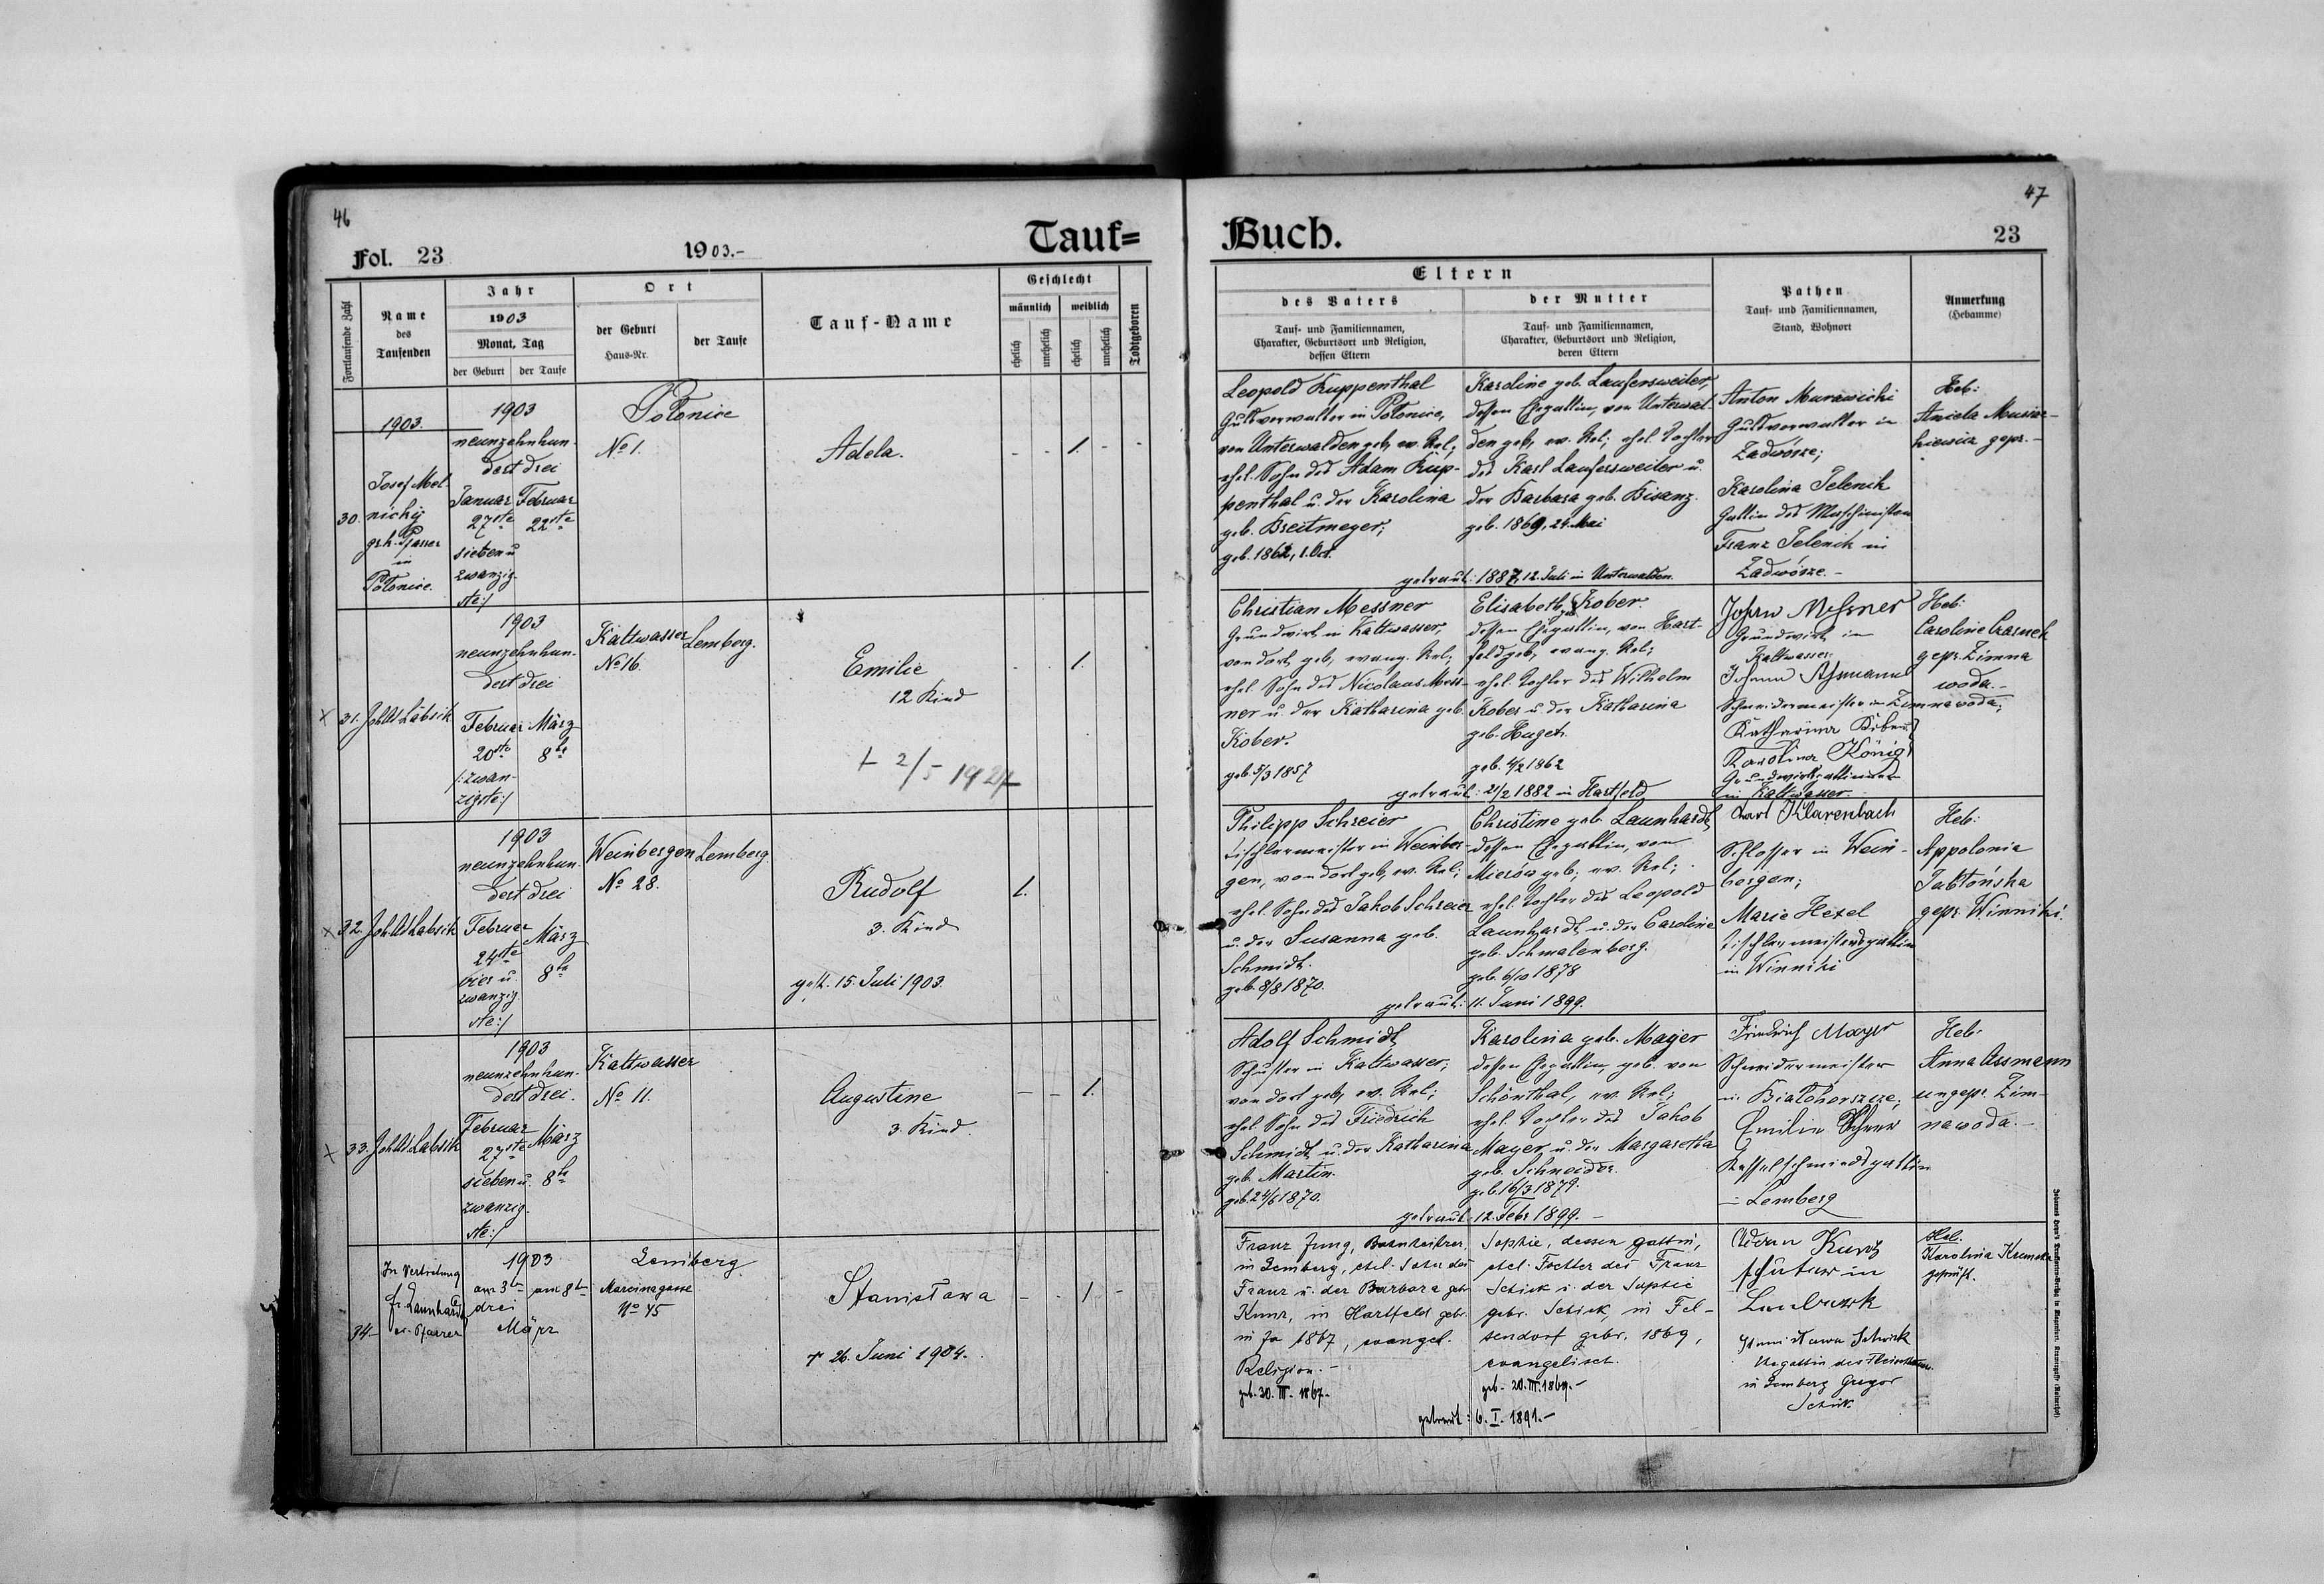 46
47
Fol. 23
1903.-
Tauf=
Buch.
23
Fortlaufende Zahl
Name
des
Taufenden
Jahr
1903
Monat, Tag
der Geburt
der Taufe
Ort
der Geburt
Haus-Nr.
der Taufe
Tauf-Name
Geschlecht
männlich
weiblich
ehelich
unehelich
ehelich
unehelich
Todtgeboren
Eltern
des Vaters
Tauf- und Familiennamen,
Charakter, Geburtsort und Religion,
dessen Eltern
der Mutter
Tauf- und Familiennamen,
Charakter, Geburtsort und Religion,
deren Eltern
Pathen
Tauf- und Familiennamen,
Stand, Wohnort
Anmerkung
(Hebamme)
1903.
30.
Josef Mel-
nickij
gr. k. Pfarrer
in
Połonice.
1903
neunzehnhun-
dert drei
Januar Februar
27ste 22ste
sieben u.
zwanzig-
ste:/
Połonice
No 1.
Adela.
- - 1. - -
Leopold Kuppenthal
Gutsverwalter in Połonice,
von Unterwalden geb., ev. Rel;
ehel. Sohn des Adam Kup-
penthal u. der Karolina
geb. Breitmeyer;
geb. 1862, 1. Oct.
Karoline geb. Laufersweiler,
dessen Ehegattin, von Unterwal-
den geb., ev. Rel; ehel. Tochter
des Karl Laufersweiler u.
der Barbara geb. Bisanz.
geb. 1869, 24. Mai
getraut: 1887, 12. Juli in Unterwalden.
Anton Murawicki
Gutsverwalter in
Zadwórze;
Karolina Jelenik
Gattin des Maschinisten
Franz Jelenik in
Zadwórze.-
Heb:
Aniela
gepr.-
x 31.
Joh. Ud. Labsik
1903
neunzehnhun-
dert drei
Februar März
20ste 8te
/:zwan-
zigste:/
Kaltwasser
No 16.
Lemberg.
Emilie
12 Kind
- - 1.
Christian Messner
Grundwirt in Kaltwasser,
von dort geb., evang. Rel;
ehel. Sohn des Nicolaus Mess-
ner u. der Katharina geb.
Kober.
geb. 5/3 1857
Elisabeth geb. Kober.
dessen Ehegattin, von Hart-
feld geb., evang. Rel;
ehel. Tochter des Wilhelm
Kober u. der Katharina
geb. Huget.
geb. 4/2 1862
getraut: 2/2 1882 in Hartfeld
Johan Meßner
Grundwirt in
Kaltwasser.
Johann Aßmann
Schneidermeister in Zimnawoda;
Katharina
Karolina König
Grundwirtsgattinnen
in Kaltwasser.
Heb:
Caroline
gepr. Zimna
woda.-
x 32.
Joh. Ud. Labsik
1903
neunzehnhun-
dert drei
Februar März
24ste 8te
vier u.
zwanzig-
ste:/
Weinbergen
No 28.
Lemberg.
Rudolf
3. Kind
gest. 15. Juli 1903.
1.
Philipp Schreier
Tischlermeister in Weinber-
gen, von dort geb., ev. Rel;
ehel. Sohn des Jakob Schreier
u. der Susanna geb.
Schmidt.
geb. 8/8 1870.
Christine geb. Launhardt,
dessen Ehegattin, von
Mierów geb; ev. Rel;
ehel. Tochter des Leopold
Launhardt u. der Caroline
geb. Schmalenberg.
geb. 6/10 1878
getraut: 11. Juni 1899.
Carl Klarenbach
Schlosser in Wein-
bergen;
Marie Hexel
Tischlermeistersgattin
in Winniki
Heb:
Appolonia
Jabłońska
gepr. Winniki.
x 33.
Joh. Ud. Labsik
1903
neunzehnhun-
dert drei.
Februar März
27ste 8te
sieben u.
zwanzig-
ste:/
Kaltwasser
No 11.
Augustine
3. Kind.
- - 1.
Adolf Schmidt
Schuster in Kaltwasser;
von dort geb., ev. Rel;
ehel. Sohn des Friedrich
Schmidt u. der Katharina
geb. Martin.
Karolina geb. Mayer
dessen Ehegattin, geb. von
Schönthal, ev. Rel;
ehel. Tochter des Jakob
Mayer u. der Margaretha
geb. Schneider.
geb. 16/3 1879.
getraut: 12. Febr 1899.-
Friedrich Mayer
Schneidermeister
in Białohorszcze;
Emilie
Kesselschmiedsgattin
in Lemberg
Heb:
Anna Assmann
ungepr. Zim-
nawoda.-
34.-
In Vertretung
Fr. Launhardt
ev. Pfarrer
1903
am 3ten am 8ten
drei
März
Lemberg
Marcinagasse
No 45
Stanisława
† 26. Juni 1904.
- - 1 -
Franz Jung,
in Lemberg, ehel. Sohn des
Franz u. der Barbara geb.
Kunz, in Hartfeld geb.
in Ja 1867, evangel.
Religion.-
geb. 30. III. 1867.-
Sophie, dessen Gattin,
ehel. Tochter des Franz
Schick u. der Sophie
gebr. Schick, in Fel-
sendorf gebr. 1869,
evangelisch.
geb. 20. III. 1869.-
getraut: 6. I. 1891.-
Adam Kunz
in
Ehegattin des
in Lemberg Gregor
Schick
Heb.
Karolina
geprüft.